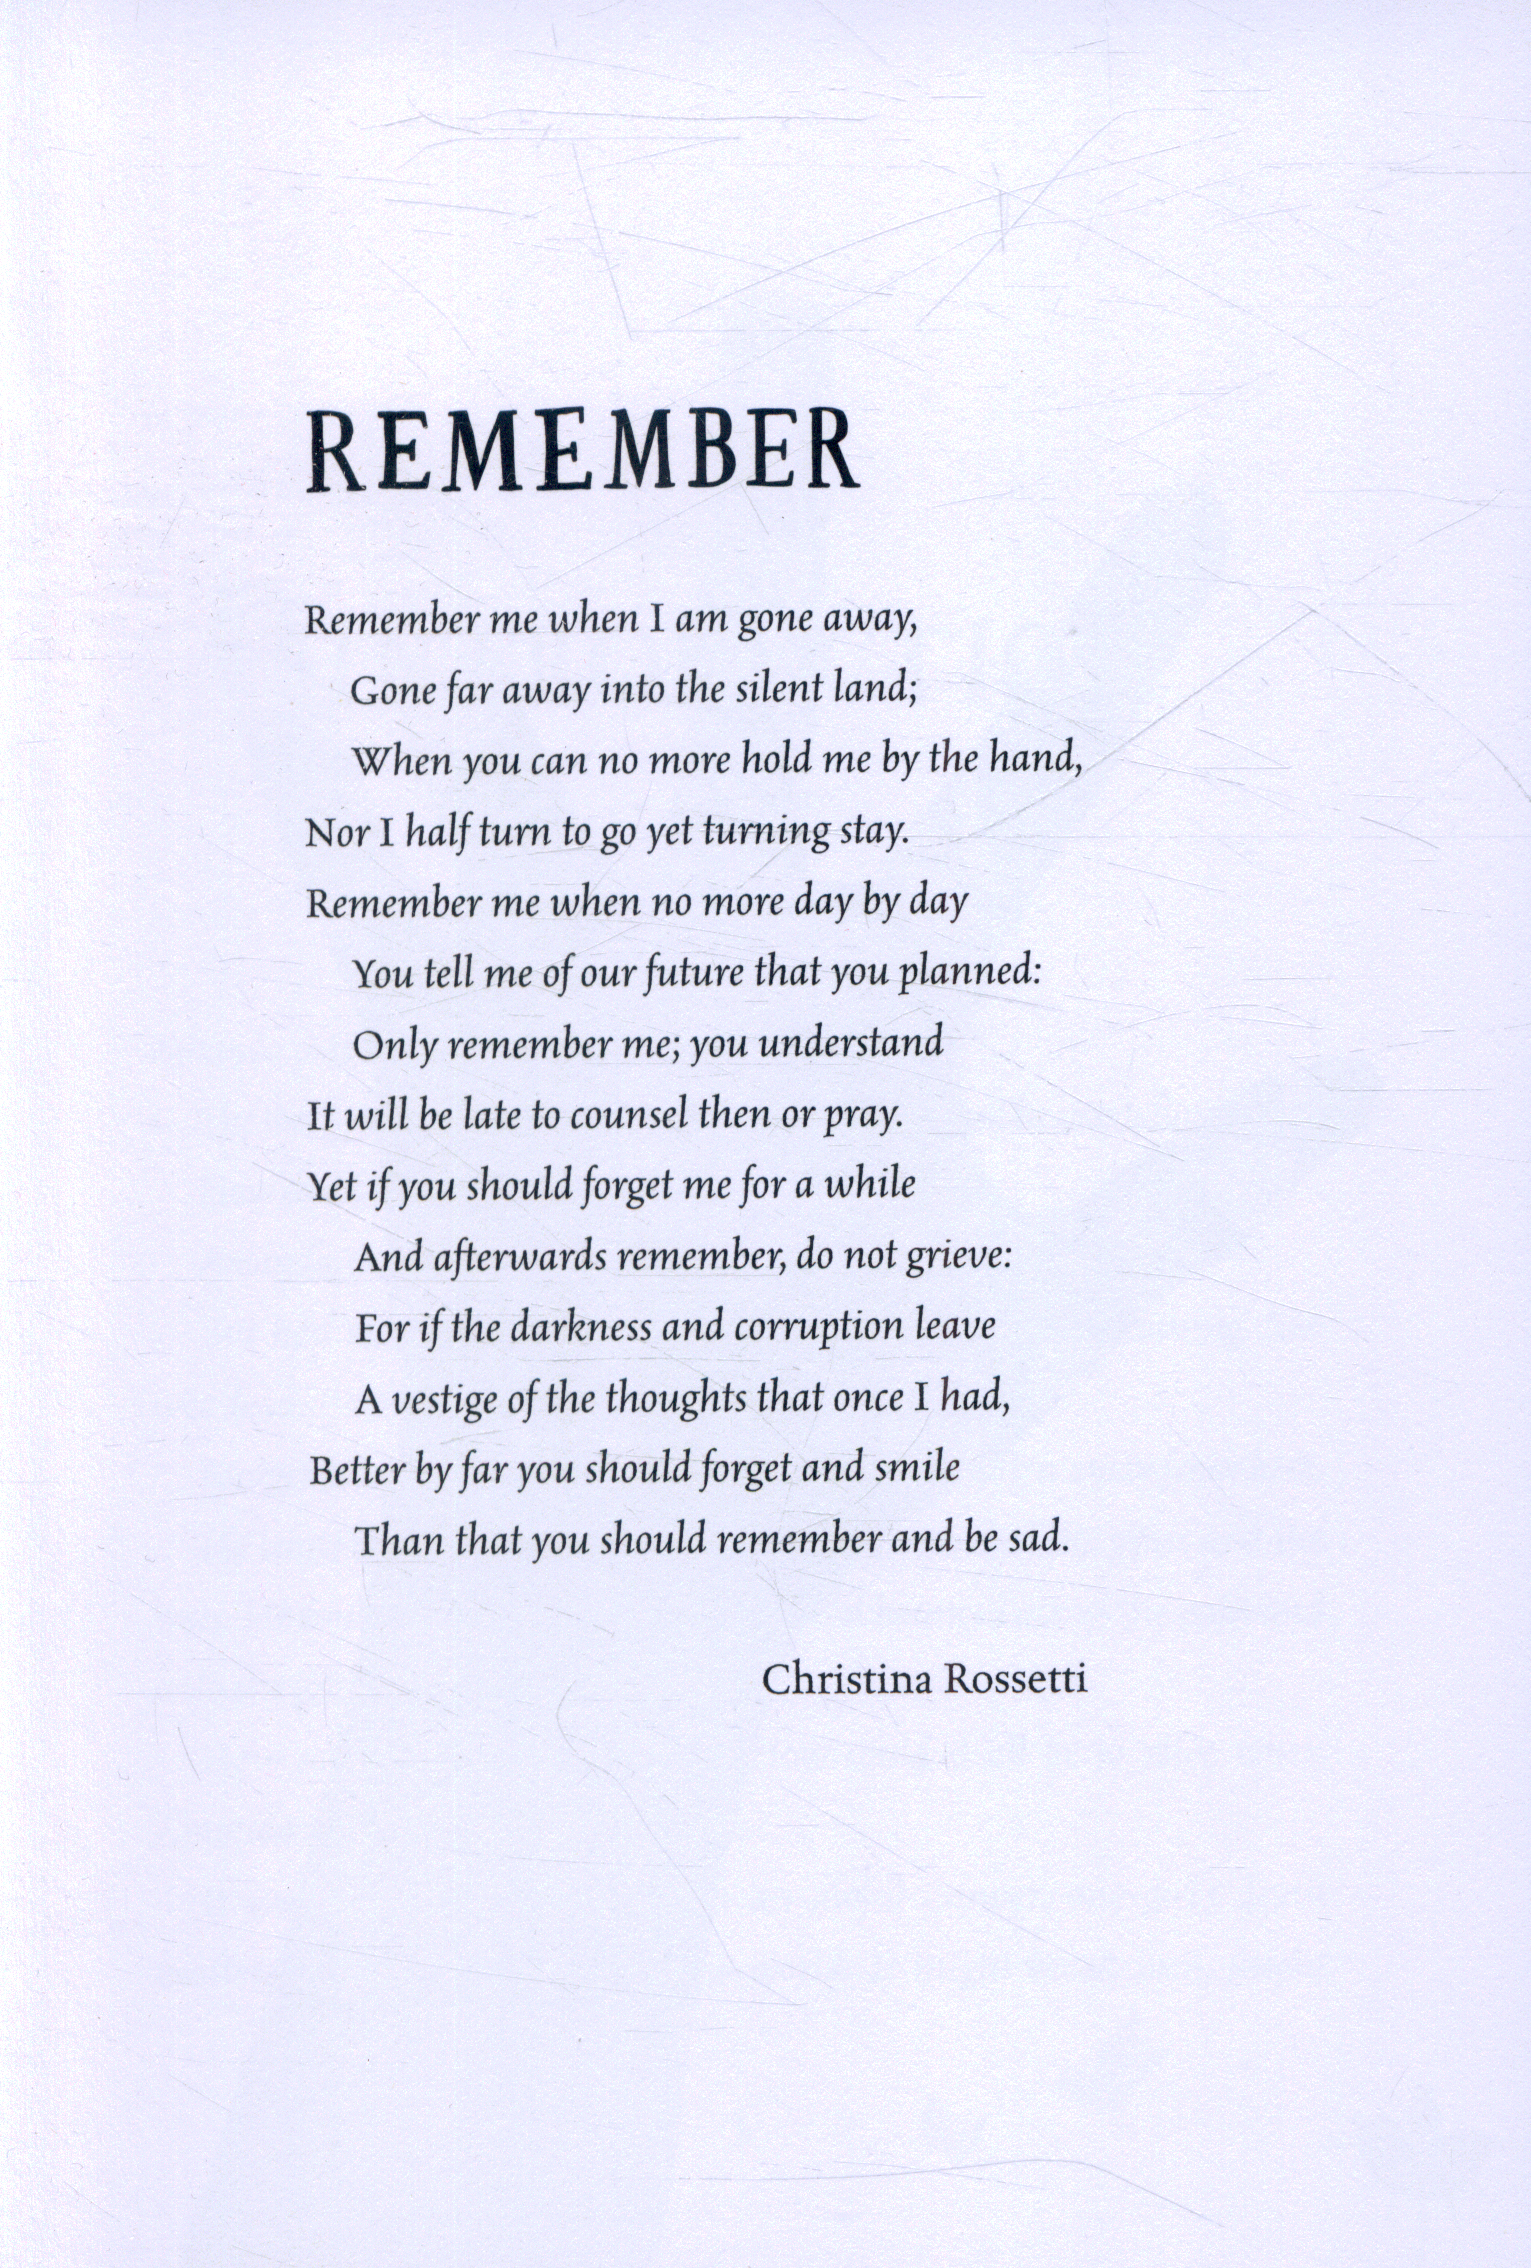 REMEMBER
Remember me when I am gone away,
Gone far away into the silent land;
When you can no more hold me by the hand,
Nor I half turn to go yet turning stay.
Remember me when no more day by day
You tell me of our future that you planned:
Only remember me; you understand
It will be late to counsel then or pray.
Yet if you should forget me for a while
And afterwards remember, do not grieve:
For if the darkness and corruption leave
A vestige of the thoughts that once I had,
Better by far you should forget and smile
Than that you should remember and be sad.
Christina Rossetti